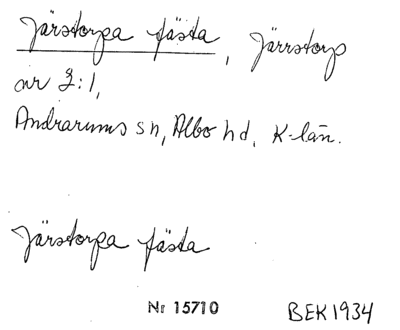 Järstorpa fästa, Järrstorp
nr 2:1,
Andrarums sn, Albo hd, K-län.
Järstorpa fästa
Nr 15710
BEK 1934